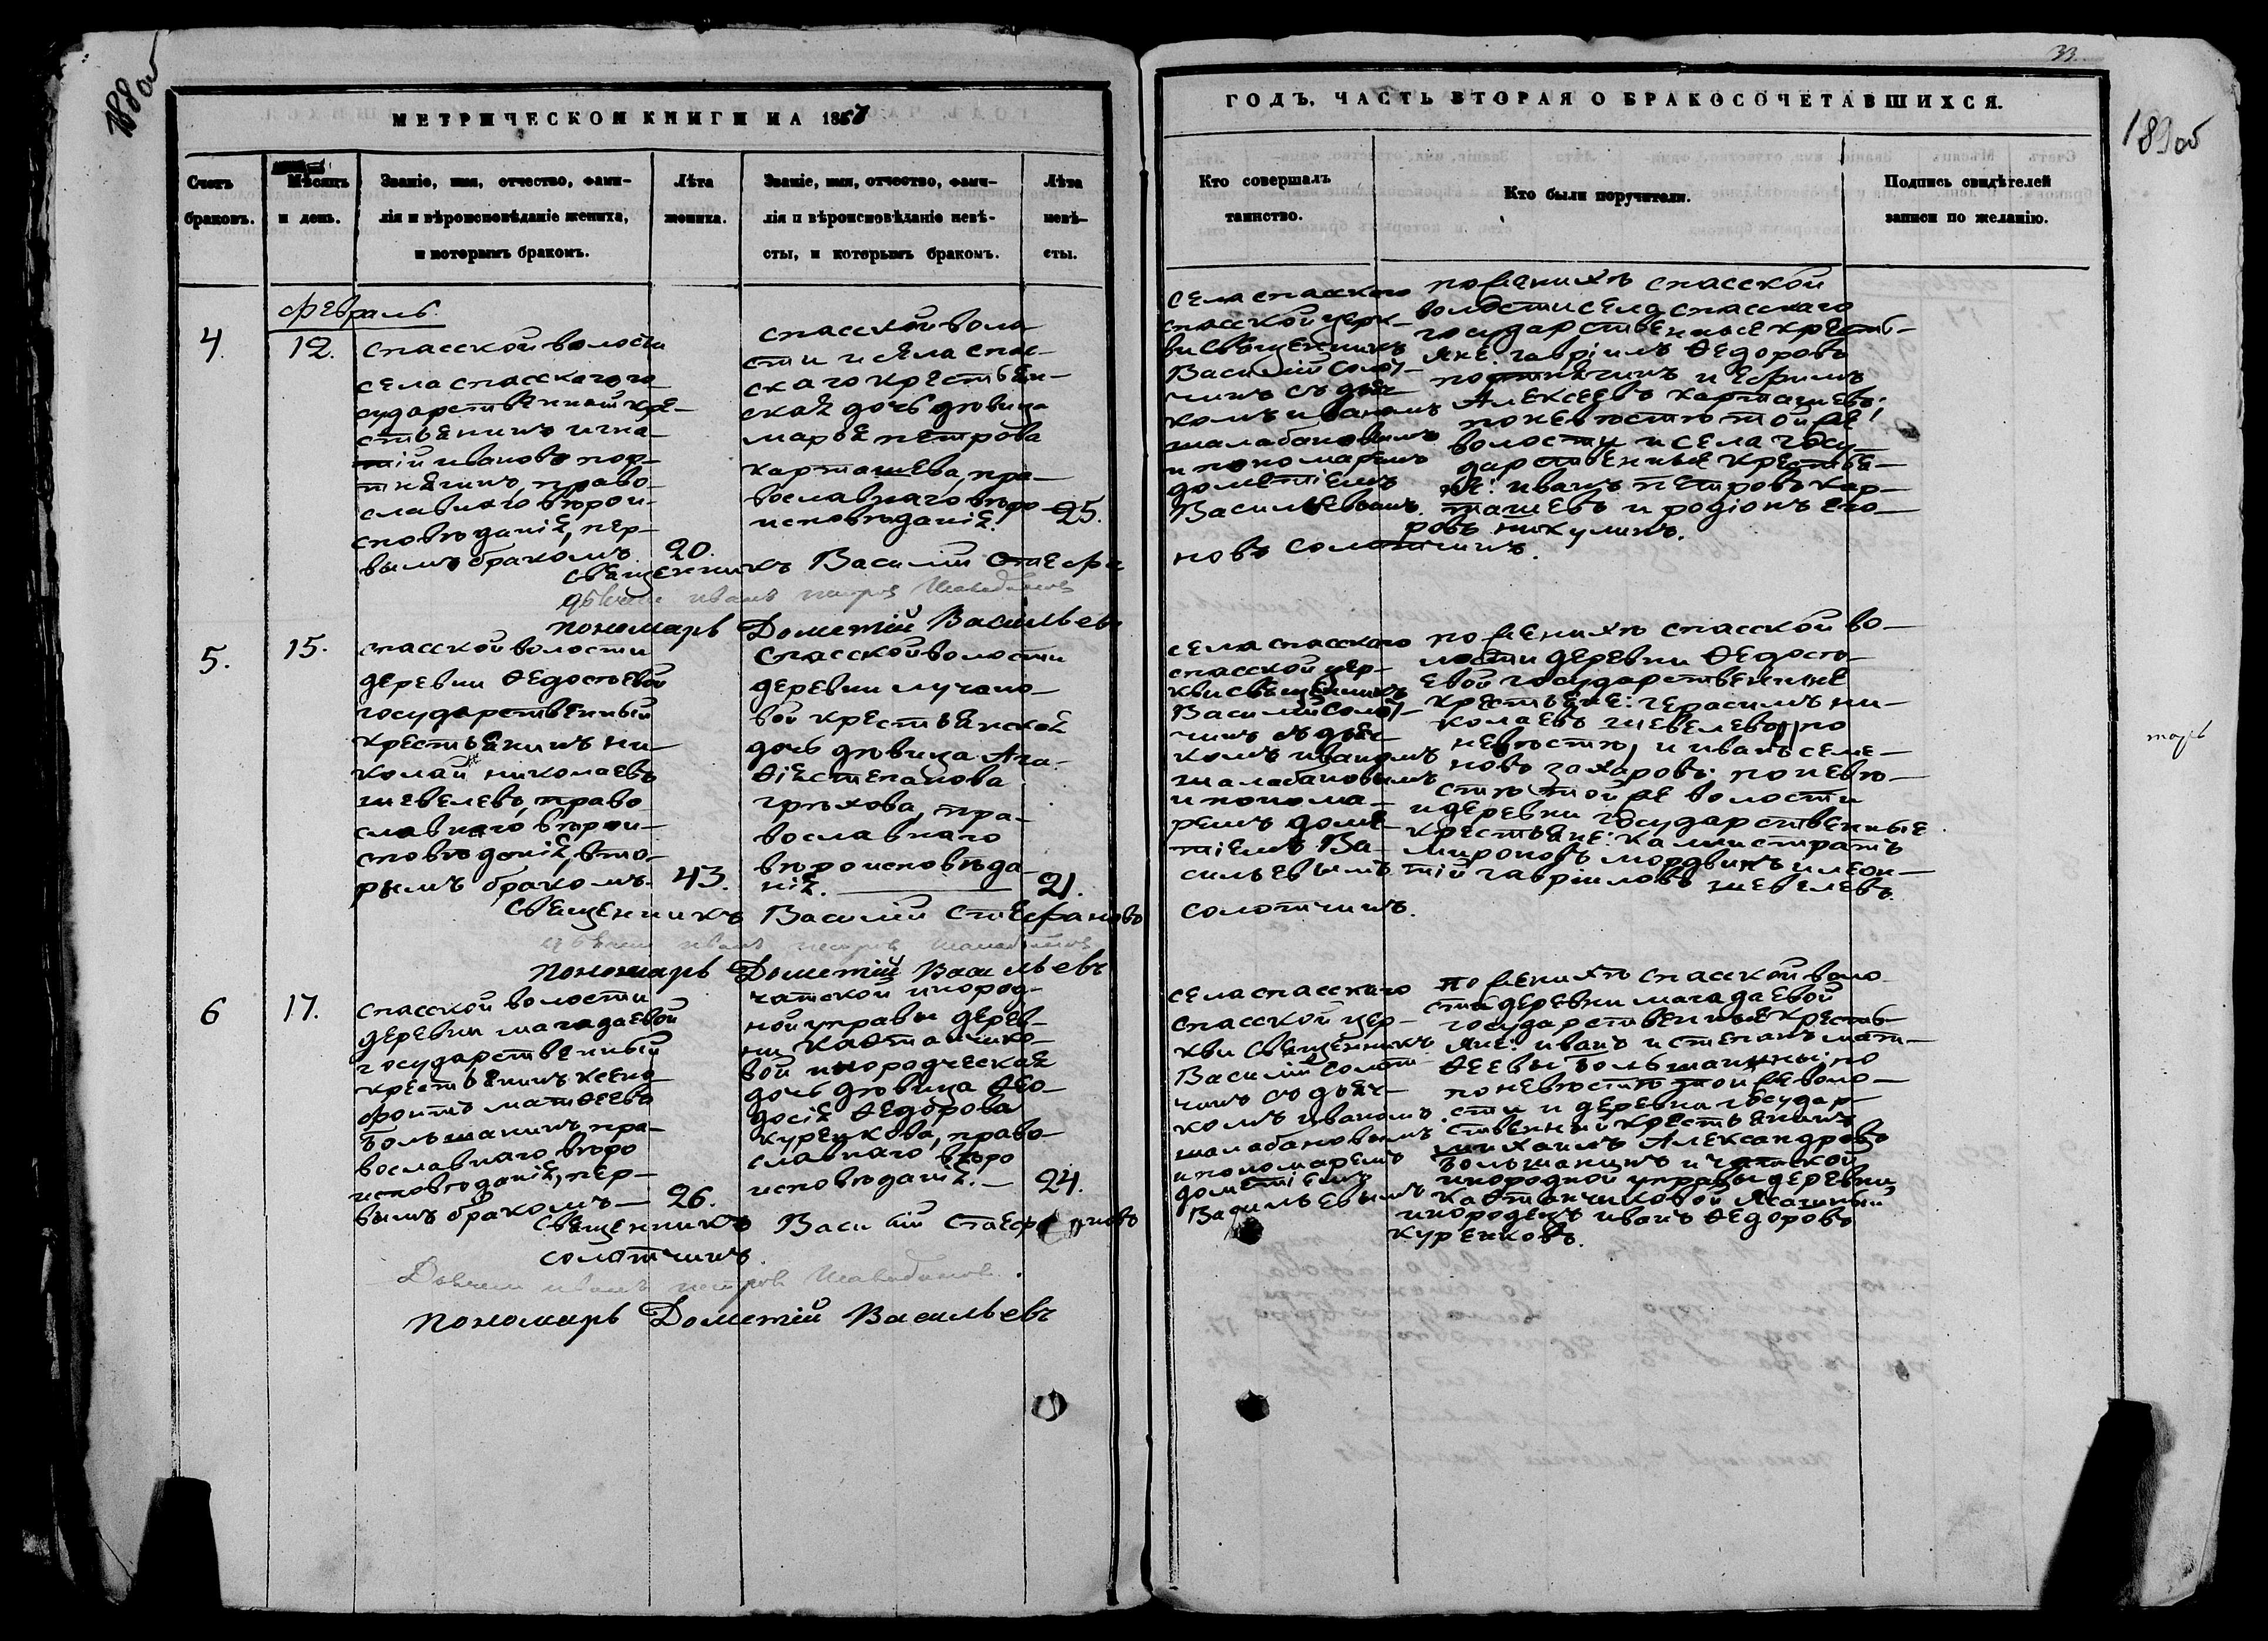 188об
МЕТРИЧЕСКОЙ КНИГИ НА 1857
Счетъ
браковъ.
Мѣсяцъ
и день.
Званіе, имя, отчество, фами-
лія и вѣроисповѣданіе жениха,
и которымъ бракомъ.
Лѣта
жениха.
Званіе, имя, отчество, фами-
лія и вѣроисповѣданіе невѣ-
сты, и которымъ бракомъ.
Лѣта
невѣ-
сты.
февраль.
4.
12.
спасской волости
села спасскаго го
сударственной кре-
стьянинъ игна-
тій ивановъ пор-
тнягинъ, право-
славнаго вѣрои-
сповѣданія, пер-
вымъ бракомъ
20.
спасской воло
сти и села спас-
скаго крестьян-
ская дочь дѣвица
марья петрова
карташева, пра-
вославнаго вѣро
исповѣданія.
25.
священникъ Василій Стефа
дьячекъ иванъ петровъ Шалабановъ
пономарь Дометій Васильевъ
5.
15.
спасской волости
деревни Ѳедосѣевой
государственный
крестьянинъ ни-
колай николаевъ
шевелевъ, право
славнаго вѣрои-
сповѣданія, вто-
рымъ бракомъ.
43.
Спасской волости
деревни лучано-
вой крестьянская
дочь дѣвица Ага-
ѳія степанова
грѣхова, пра-
вославнаго
вѣроисповѣда
нія.
21.
Священникъ Василій Стефановъ
дьячекъ иванъ петровъ Шалабановъ
пономарь Дометій Васильевъ
6
17.
спасской волости
деревни магадаевой
государственный
крестьянинъ ксено
фонтъ матѳеевъ
большанинъ, пра-
вославнаго вѣро
исповѣданія, пер-
вымъ бракомъ
26.
чатской инород-
ной управы дерев-
ни кафтанчико-
вой инородческая
дочь дѣвица Ѳео-
досія Ѳедорова
куренкова, право-
славнаго вѣро
исповѣданія.
24.
Священникъ Василій Стефановъ
солотчинъ.
Дьячекъ иванъ петровъ Шалабановъ.
пономарь Дометій Васильевъ
33.
189об
ГОДЪ, ЧАСТЬ ВТОРАЯ О БРАКОСОЧЕТАВШИХСЯ.
Кто совершалъ
таинство.
Кто были поручители.
Подпись свидѣтелей
записи по желанію.
села спасскаго
спасской церк-
ви священникъ
Василій солот-
чинъ съ дьяч-
комъ иваномъ
шалабановымъ
и пономаремъ
дометіемъ
Васильевымъ.
новъ солотчинъ.
по женихѣ спасской
волости села спасскаго
государственные кресть-
яне: гавріилъ Ѳедоровъ
портнягинъ и ефимъ
Алексеевъ карташевъ;
по невѣстѣ той же
волости и села госу-
дарственные крестья-
не: иванъ петровъ кар-
ташевъ и родіонъ его-
ровъ никулинъ.
села спасскаго
спасской цер-
кви священникъ
Василій солот-
чинъ съ дьяч-
комъ иваномъ
шалабановымъ
и понома-
ремъ доме-
тіемъ Ва-
сильевымъ
солотчинъ.
по женихѣ спасской во-
лости деревни Ѳедосѣ-
евой государственные
крестьяне: герасимъ ни-
колаевъ шевелевъ по
невѣстѣ, и иванъ семе-
новъ захаровъ; по невѣ-
стѣ той же волости
и деревни государственные
крестьяне: каллистратъ
мироновъ мордвинъ и леон-
тій гавріиловъ шевелевъ.
села спасскаго
спасской цер-
кви священникъ
Василій солот-
чинъ съ дьяч-
комъ иваномъ
шалабановымъ
и пономаремъ
дометіемъ
Васильевымъ
по женихѣ спасской воло-
сти деревни магадаевой
государственные кресть-
яне: иванъ и степанъ мат-
ѳеевы большанины; по
по невѣстѣ той же воло-
сти и деревни государ-
ственный крестьянинъ
михаилъ Александровъ
большанинъ и чатской
инородной управы деревни
кафтанчиковой Ясашный
инородецъ иванъ Ѳедоровъ
куренковъ.